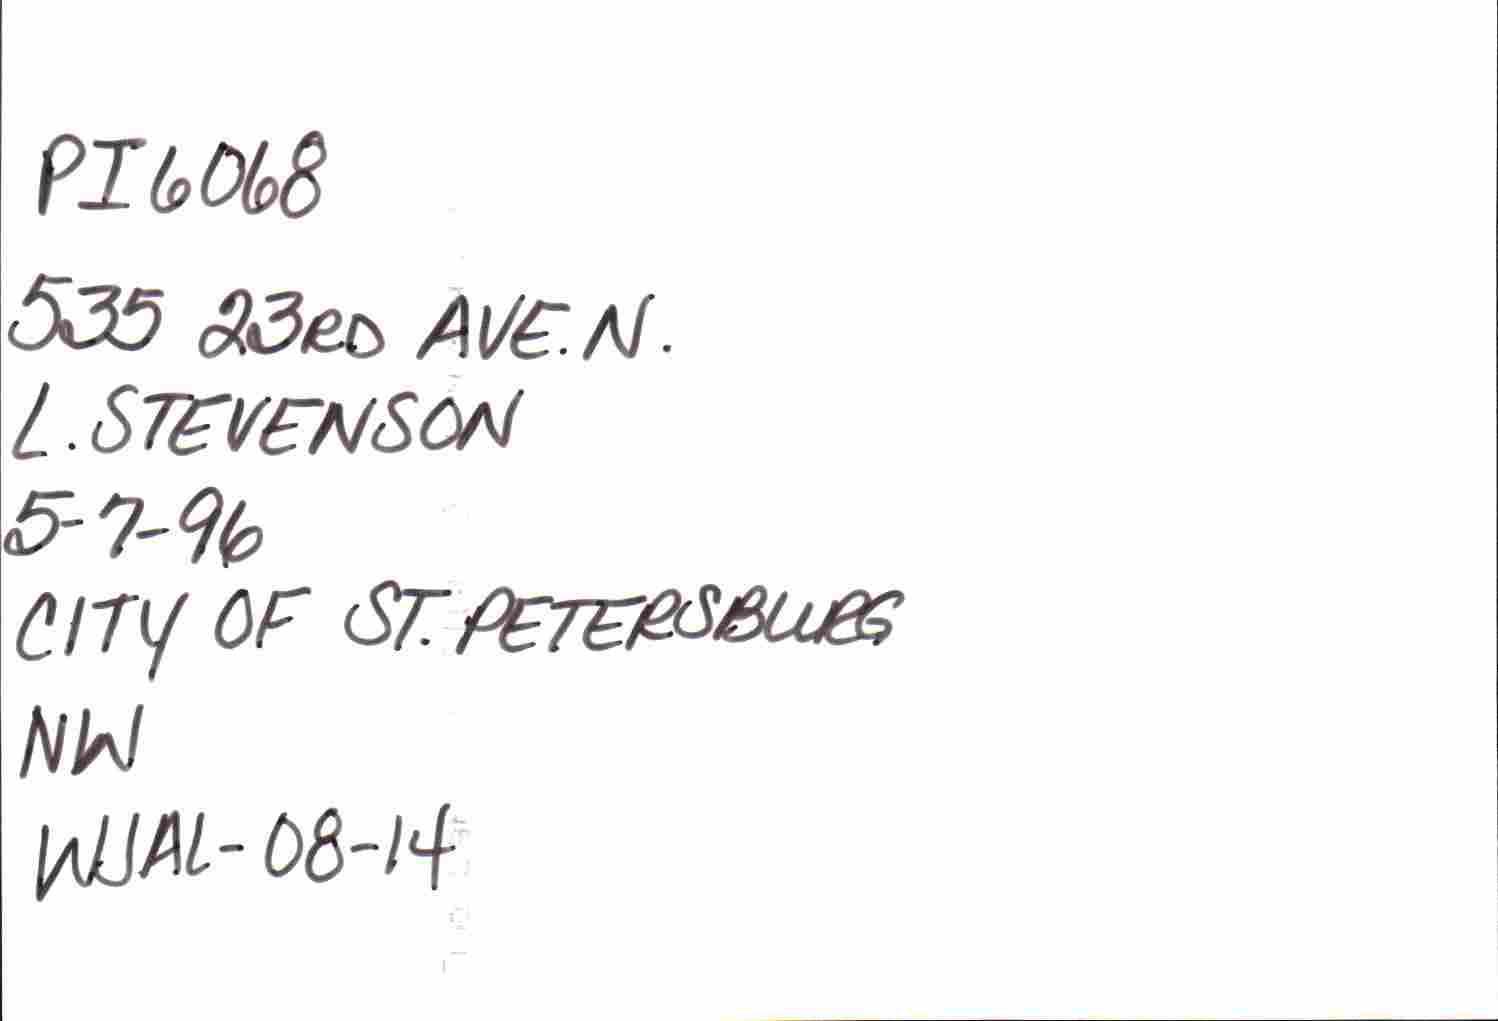 PI6068
535 23RD AVE. N.
L. STEVENSON
5-7-96
CITY OF ST. PETERSBURG
NW
WJAL-08-14